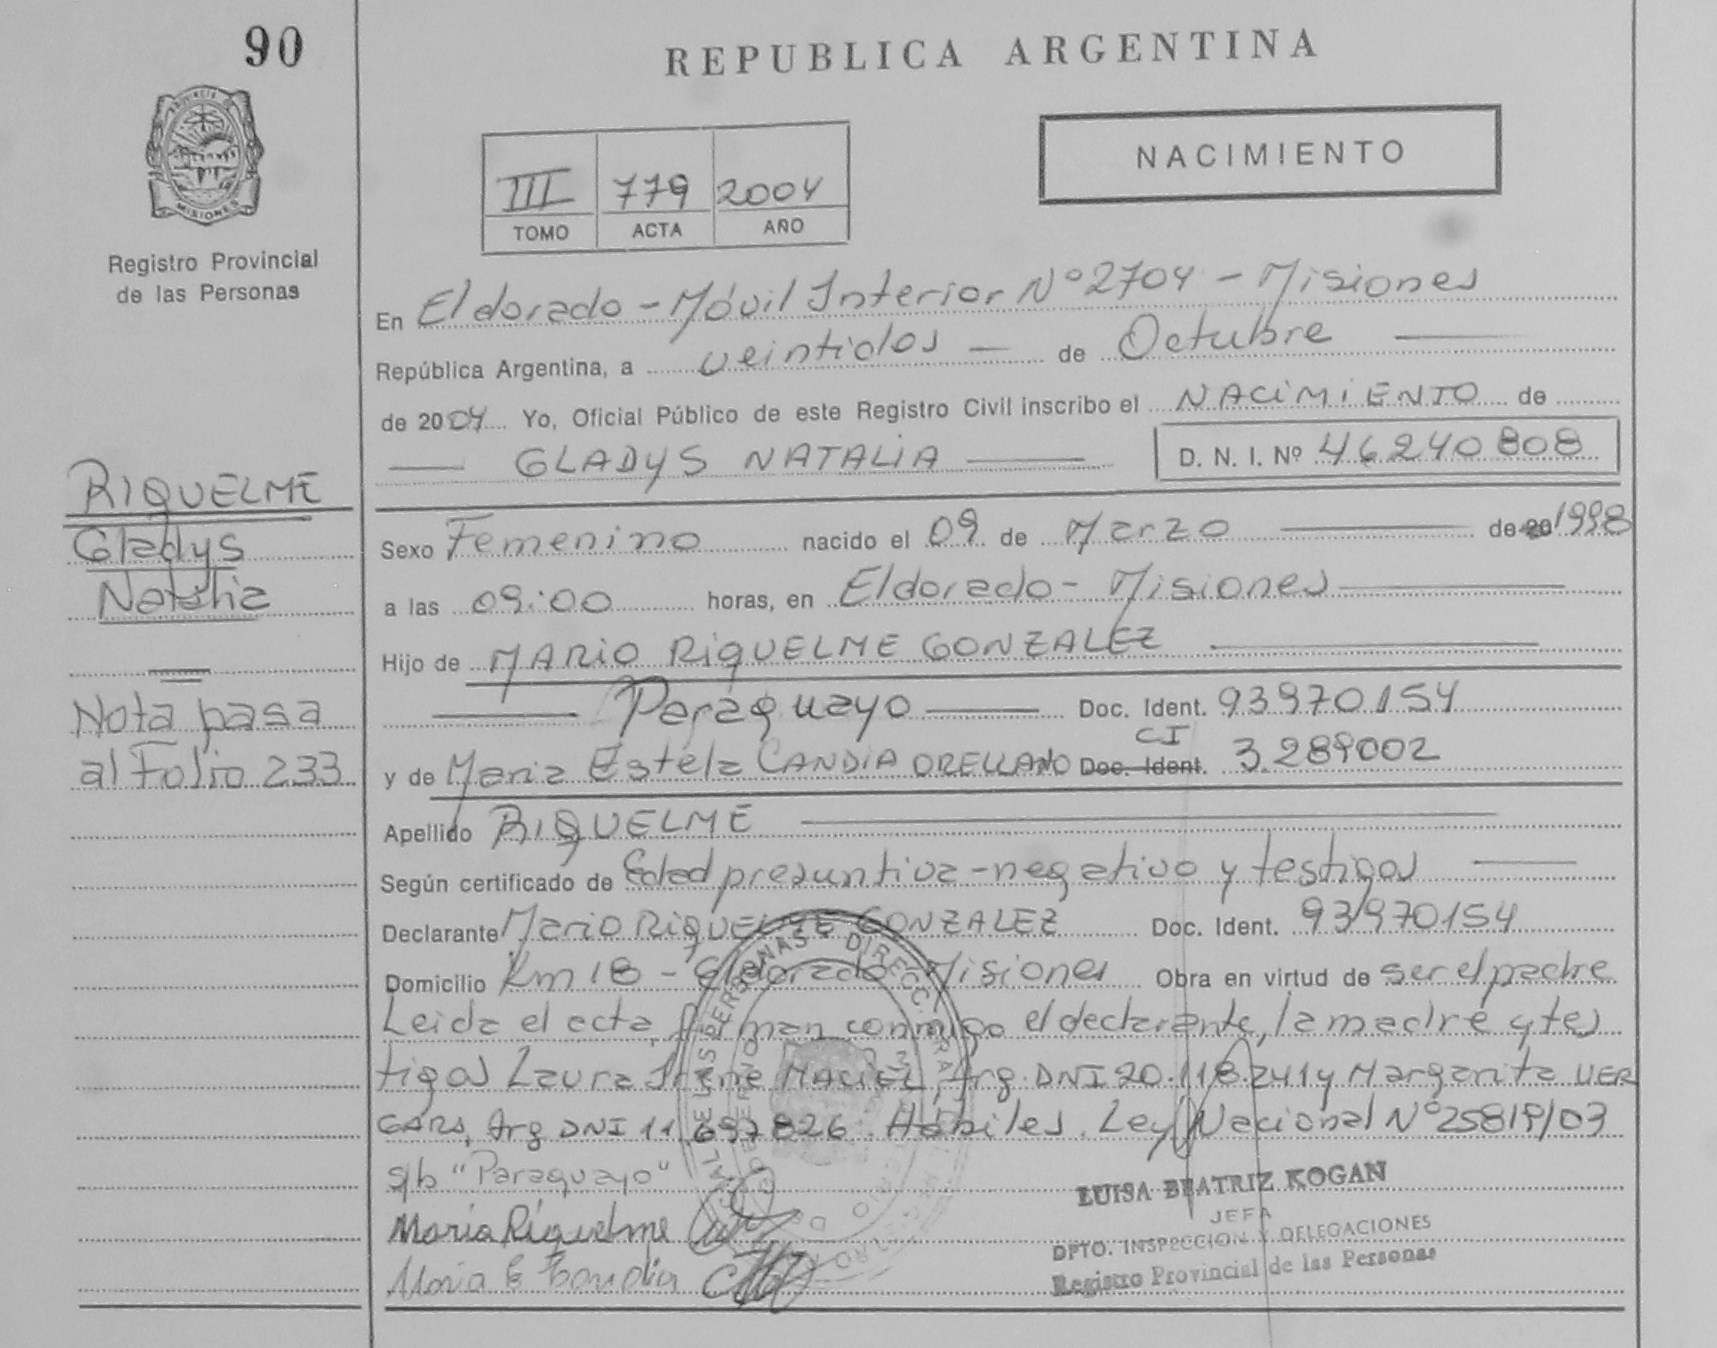 90
REPUBLICA ARGENTINA
NACIMIENTO
III 779 2004
TOMO ACTA AÑO
PROVINCIA DE
MISIONES
Registro Provincial
de las Personas
En Eldorado - Móvil Interior Nº 2704 - Misiones
República Argentina, a veintidos — de Octubre —
de 2004 Yo, Oficial Público de este Registro Civil inscribo el NACIMIENTO de
— GLADYS NATALIA — D. N. I. Nº 46240808
RIQUELME
Gladys
Natalia
Sexo Femenino nacido el 09 de Marzo — de 20 1998
a las 09:00 horas, en Eldorado - Misiones —
Hijo de MARIO RIQUELME GONZALEZ —
— Paraguayo — Doc. Ident. 93970154
Nota pasa
al Folio 233
CI
y de Maria Estela CANDIA ORELLANO Doc. Ident. 3.289002
Apellido RIQUELME —
Según certificado de Edad presuntiva - negativo y testigos —
Declarante Mario RIQUELME GONZALEZ Doc. Ident. 93970154
Domicilio Km 18 - Eldorado - Misiones Obra en virtud de ser el padre
Leida el acta, firman conmigo el declarante, la madre y tes
tigos Laura Irene MACIEL Arg. DNI 20.118.241 y Margarita VER
GARA, Arg DNI 11.697826. Hábiles. Ley Nacional Nº 25819/03
s/b "Paraguayo"
Mario Riquelme
Maria E Candia
LUISA BEATRIZ KOGAN
JEFA
DPTO. INSPECCION Y DELEGACIONES
Registro Provincial de las Personas